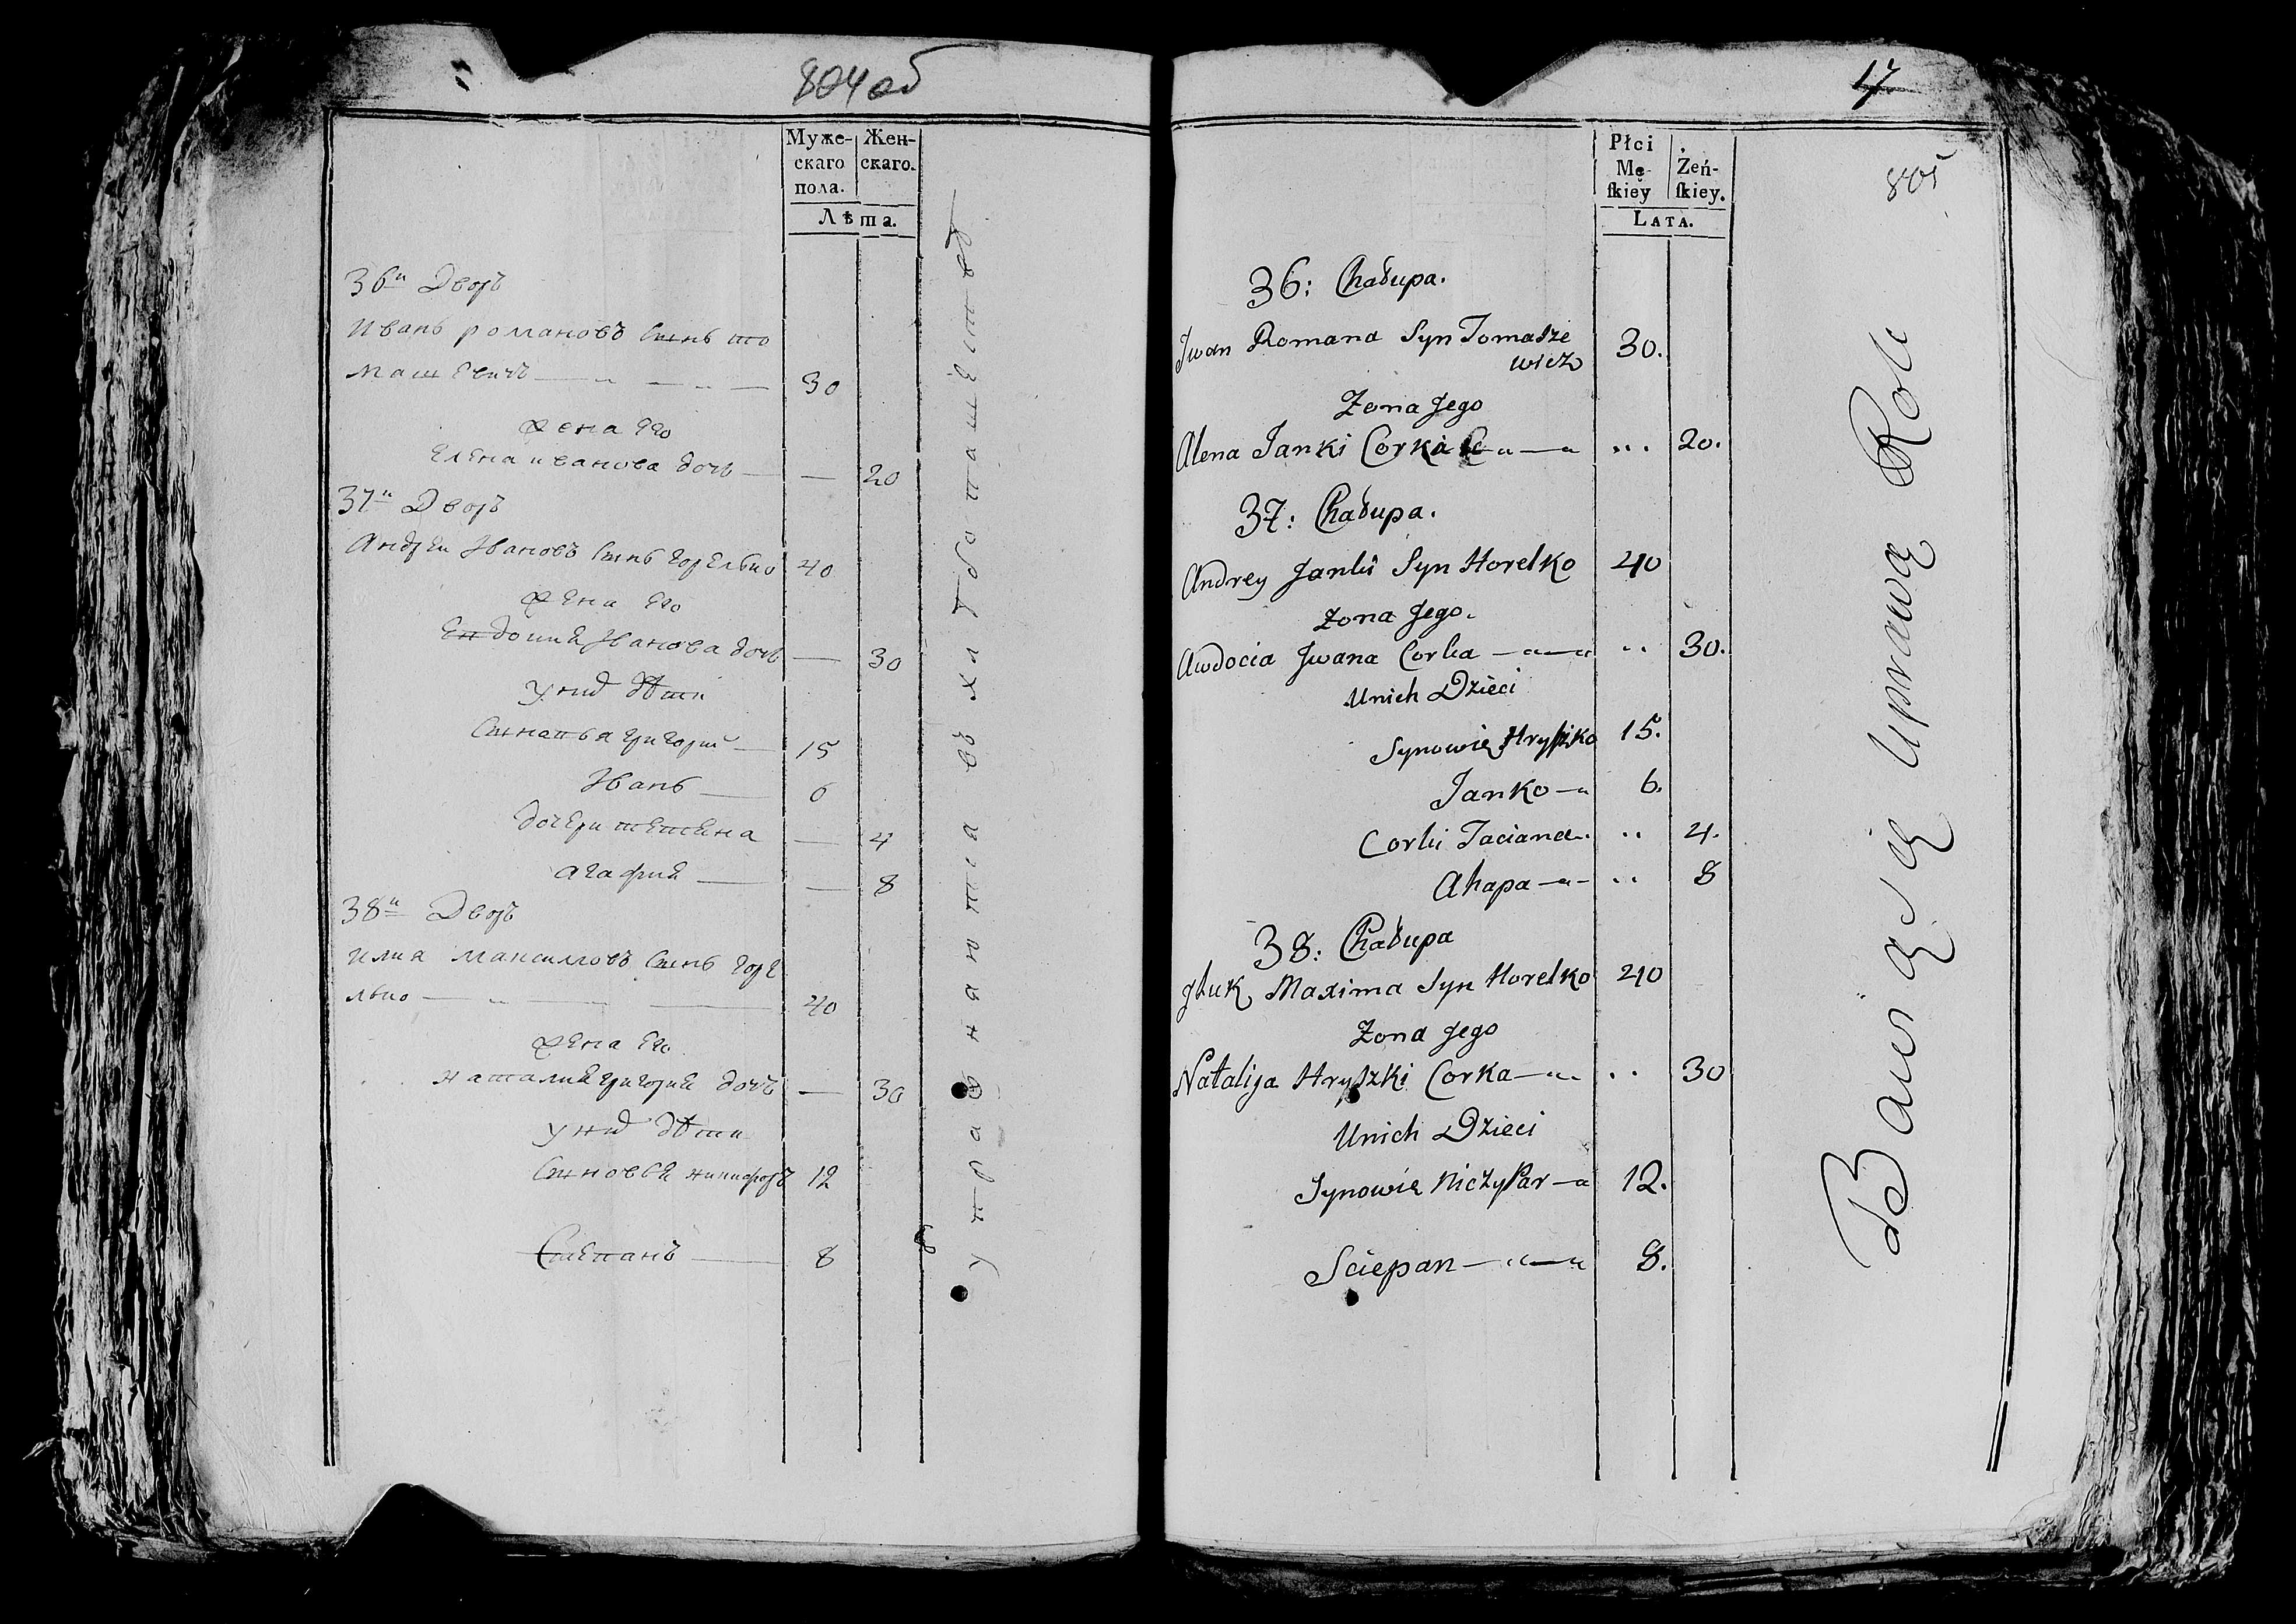 804 об
Муже-
скаго
пола.
Жен-
скаго.
Лѣта.
36й Дворъ
Иванъ романовъ Сынъ то
машевичъ 30
жена его
Елена иванова дочь 20
37й Дворъ
Андрей Ивановъ Сынъ горелько 40
жена его
Евдокия Иванова дочь 30
у них дѣти
Григорий 15
Иванъ 6
дочери татьяна 4
агафия 8
38й Дворъ
илия максимовъ Сынъ горе
лько 40
жена его
наталия григория дочь 30
у них дѣти
Сыновья никифоръ 12
Степанъ 8
17
805
Płci
Mę-
ſkiey
Żeń-
ſkiey.
LATA.
36: Chałupa.
Iwan Romana Syn Tomasze
wicz 30.
Zona Jego
Alena Janki Corka 20.
37: Chałupa.
Andrey Janki Syn Horelko 40
Zona Jego.
Awdocia Jwana Corka 30.
Unich Dzieci
Synowie Hryszko 15.
Janko 6.
Corki Taciana 4.
Ahapa 8
38: Chałupa
Maxima Syn Horelko 40
Zona Jego
Natalija Hryszki Corka 30
Unich Dzieci
Synowie Niczypar 12.
Sciepan 8.
Bawią się Uprawą Roli